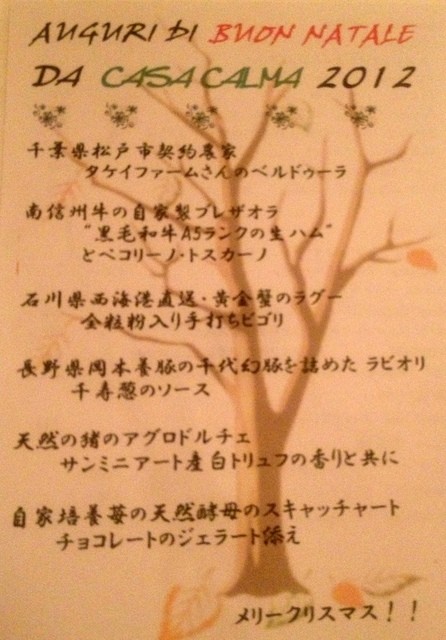 AUGURI DI BUON NATALE
DA CASA CALMA 2012
千葉県松戸市契約農家
タケイファームさんのベルドゥーラ
南信州牛の自家製ブレザオラ
"黒毛和牛A5ランクの生ハム"
とペコリーノ・トスカーノ
石川県西海港直送・黄金蟹のラグー
全粒粉入り手打ちピゴリ
長野県岡本養豚の千代幻豚を詰めた ラビオリ
千寿葱のソース
天然の猪のアグロドルチェ
サンミニアート産白トリュフの香りと共に
自家培養苺の天然酵母のスキャッチャート
チョコレートのジェラート添え
メリークリスマス!!